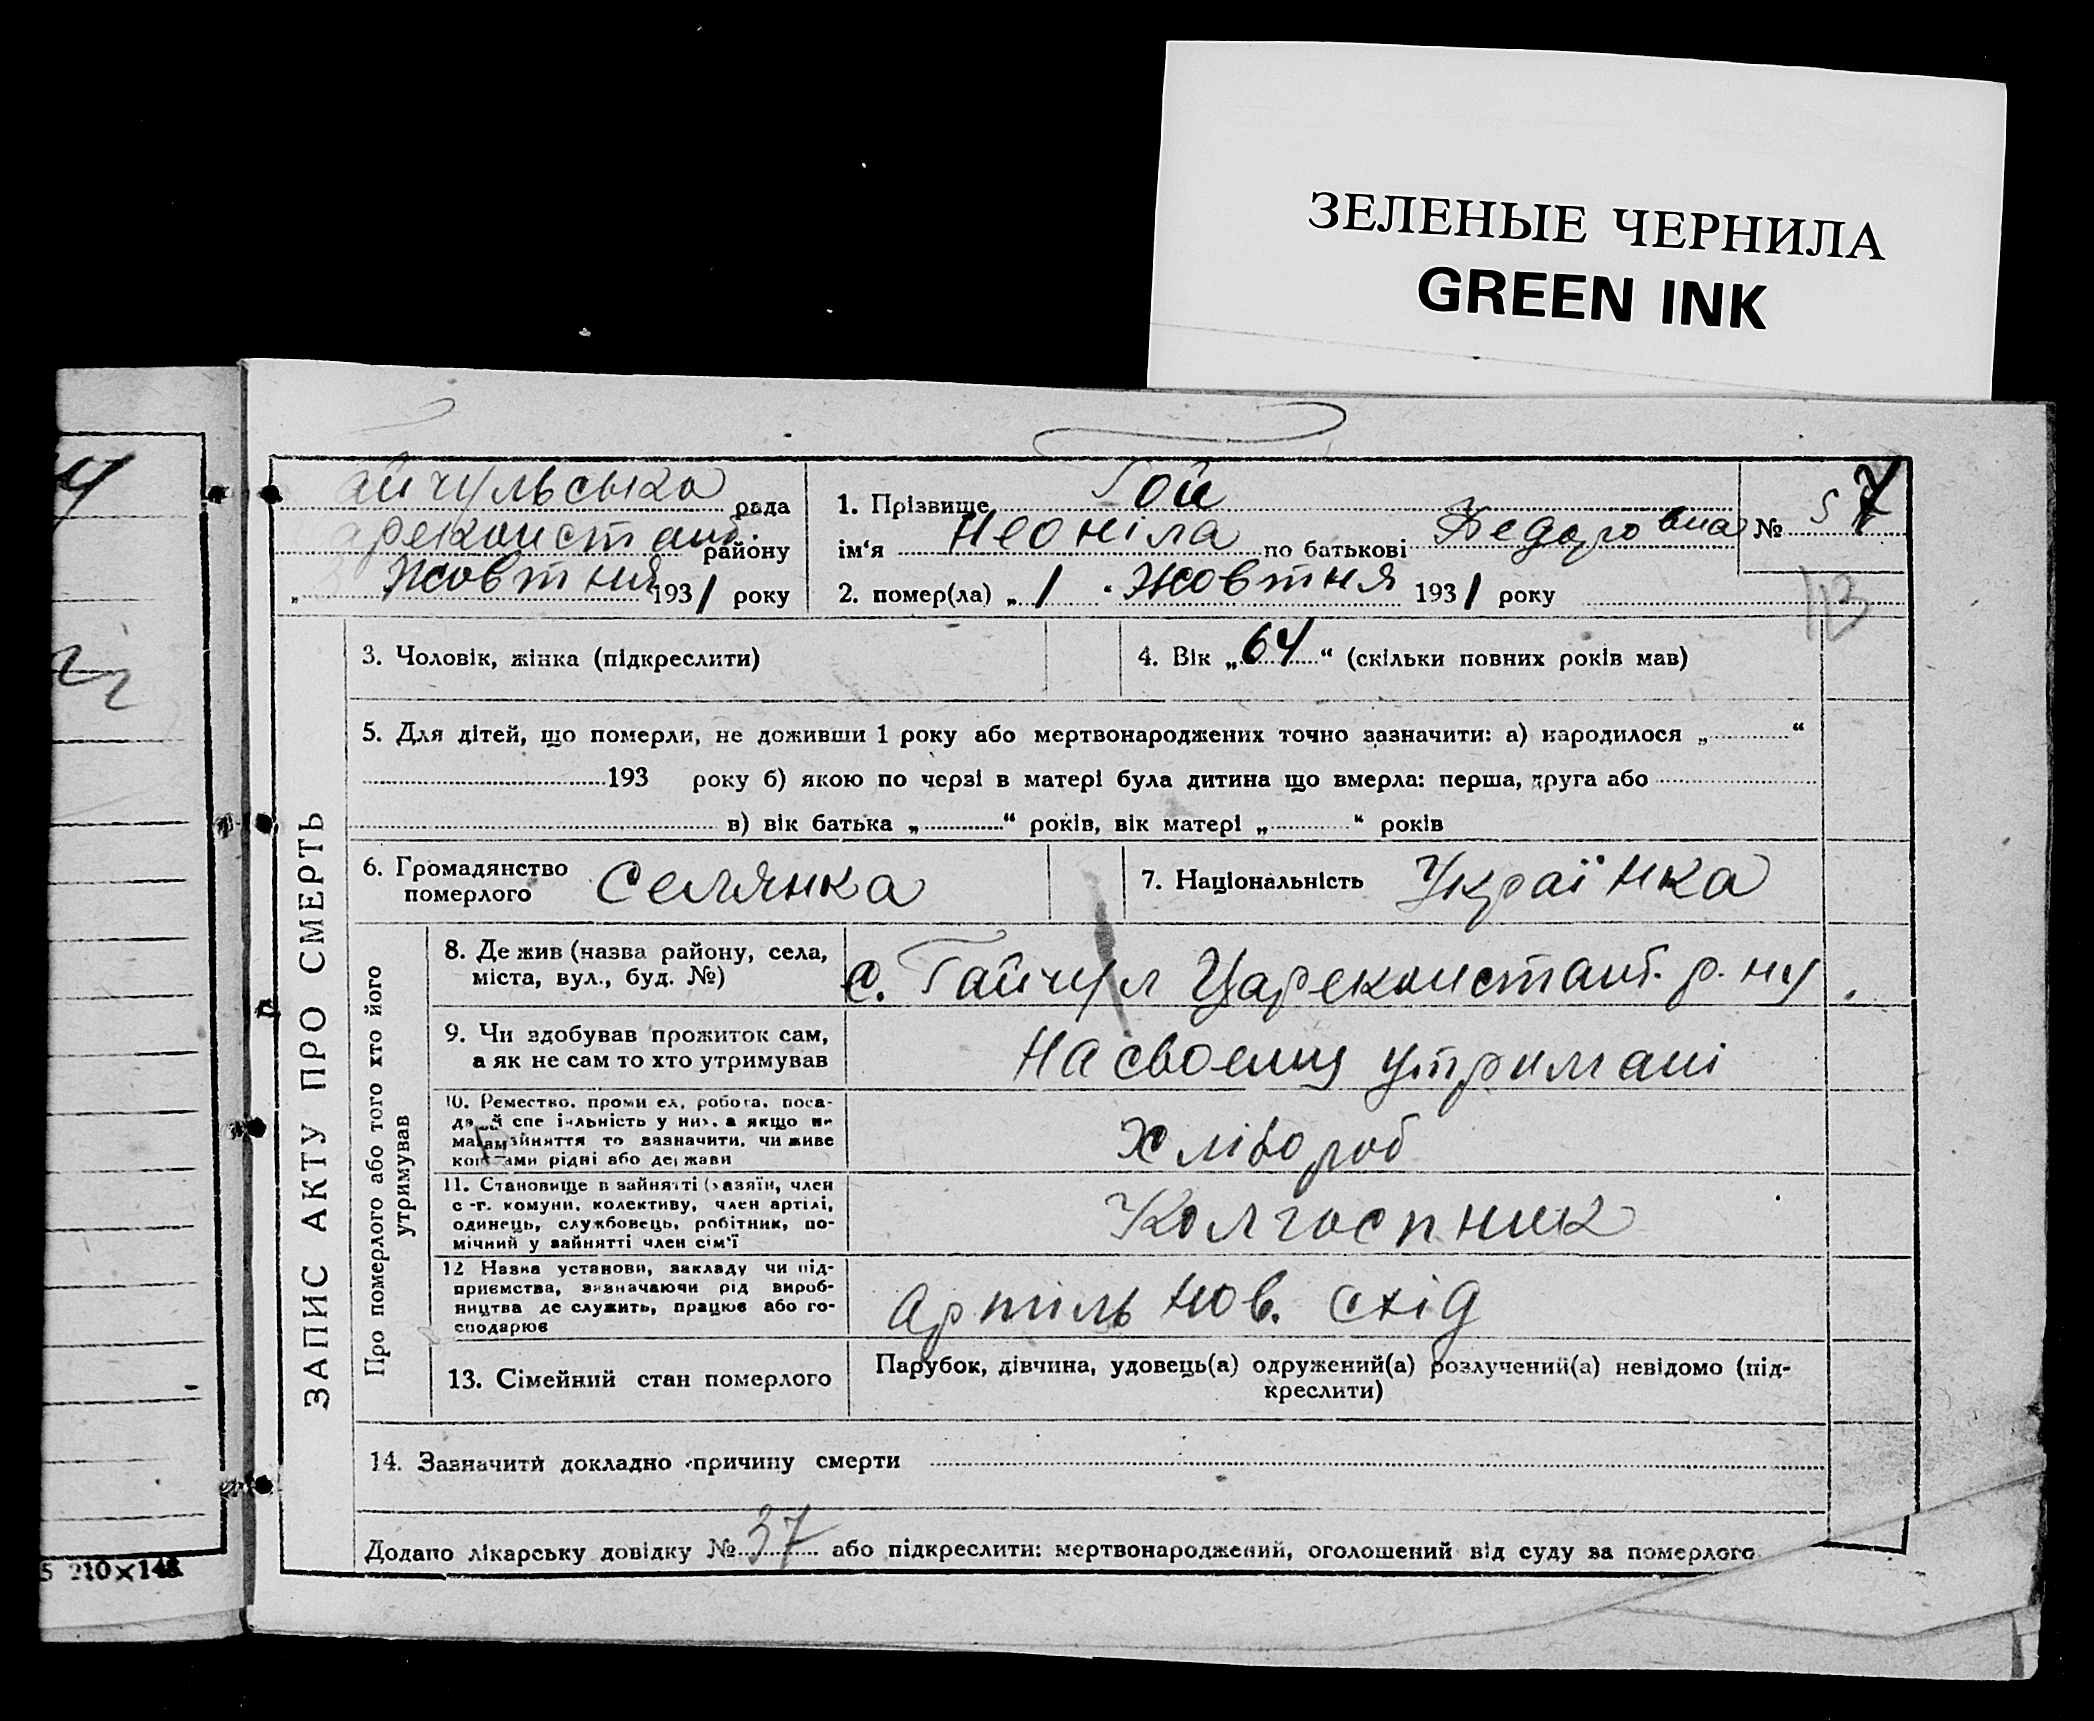 ЗЕЛЕНЫЕ ЧЕРНИЛА
GREEN INK
айчульська рада
арекконстант. району
„ Жовтня 1931 року
1. Прізвище Гой
ім‘я Неоніла по батькові Федоровна
№ 57
2. помер(ла) „ 1 Жовтня 1931 року
113
ЗАПИС АКТУ ПРО СМЕРТЬ
3. Чоловік, жінка (підкреслити)
4. Вік „64“ (скільки повних років мав)
5. Для дітей, що померли, не доживши 1 року або мертвонароджених точно зазначити: а) народилося „ “
193 року б) якою по черзі в матері була дитина що вмерла: перша, друга або
в) вік батька „ “ років, вік матері „ “ років
6. Громадянство
померлого Селянка
7. Національність Українка
Про померлого або того хто його
утримував
8. Де жив (назва району, села,
міста, вул., буд. №)
с. Гайчул Цареконстант. р-ну
9. Чи здобував прожиток сам,
а як не сам то хто утримував
На своєму утримані
10. Ремество, промисел, робота, поса-
да й спеціяльність у них, а якщо не
мав зайняття то зазначити, чи живе
коштами рідні або держави
Хлібороб
11. Становище в зайнятті (хазяїн, член
с.-г. комуни, колективу, член артілі,
одинець, службовець, робітник, по-
мічний у зайнятті член сім‘ї
Колгоспник
12 Назва установи, закладу чи під-
приємства, визначаючи рід вироб-
ництва де служить, працює або го-
сподарює
Артіль Нов. Схід
13. Сімейний стан померлого
Парубок, дівчина, удовець(а) одружений(а) розлучений(а) невідомо (під-
креслити)
14. Зазначити докладно причину смерти
Додано лікарську довідку № 37 або підкреслити: мертвонароджений, оголошений від суду за померлого
5 210×148